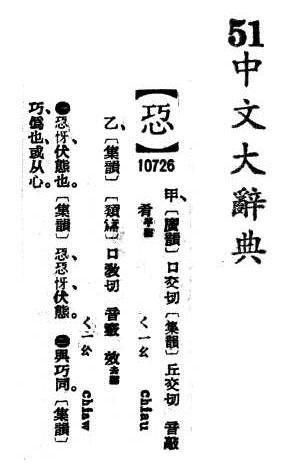 51中文大辭典
【㤍】
10726
甲、〔廣韻〕口交切〔集韻〕丘交切 音敲
肴平聲 ㄑㄧㄠ chiau
乙、〔集韻〕〔類篇〕口敎切 音竅 效去聲
ㄑㄧㄠ chiaw
㊀㤍㤉伏態也。〔集韻〕㤍、㤍㤉、伏態。㊁與巧同。〔集韻〕
巧、僞也、或从心。